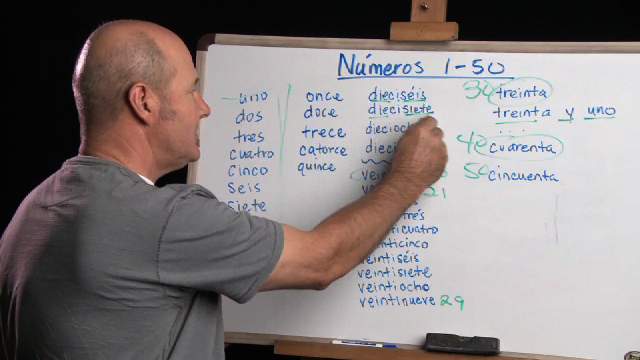 Números 1-50
uno
dos
tres
cuatro
cinco
seis
siete
once
doce
trece
catorce
quince
dieciséis
diecisiete
21
veintiséis
veintisiete
veintiocho
veintinueve 29
30 treinta
treinta y uno
....
40 cuarenta
50 cincuenta